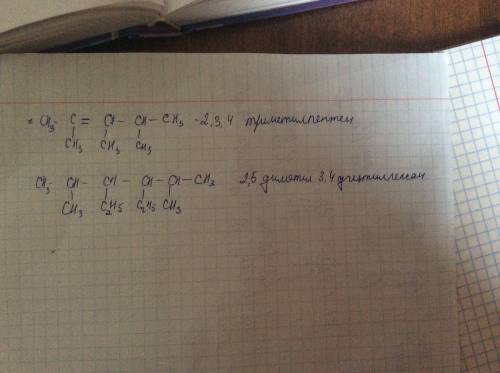 CH₃- C = CH - CH - CH₃ -2,3,4 триметилпентен
CH₃ CH₃ CH₃
CH₃- CH - CH - CH - CH - CH₃ 2,5 диметил 3,4 диэтилгексан
CH₃ C₂H₅ C₂H₅ CH₃